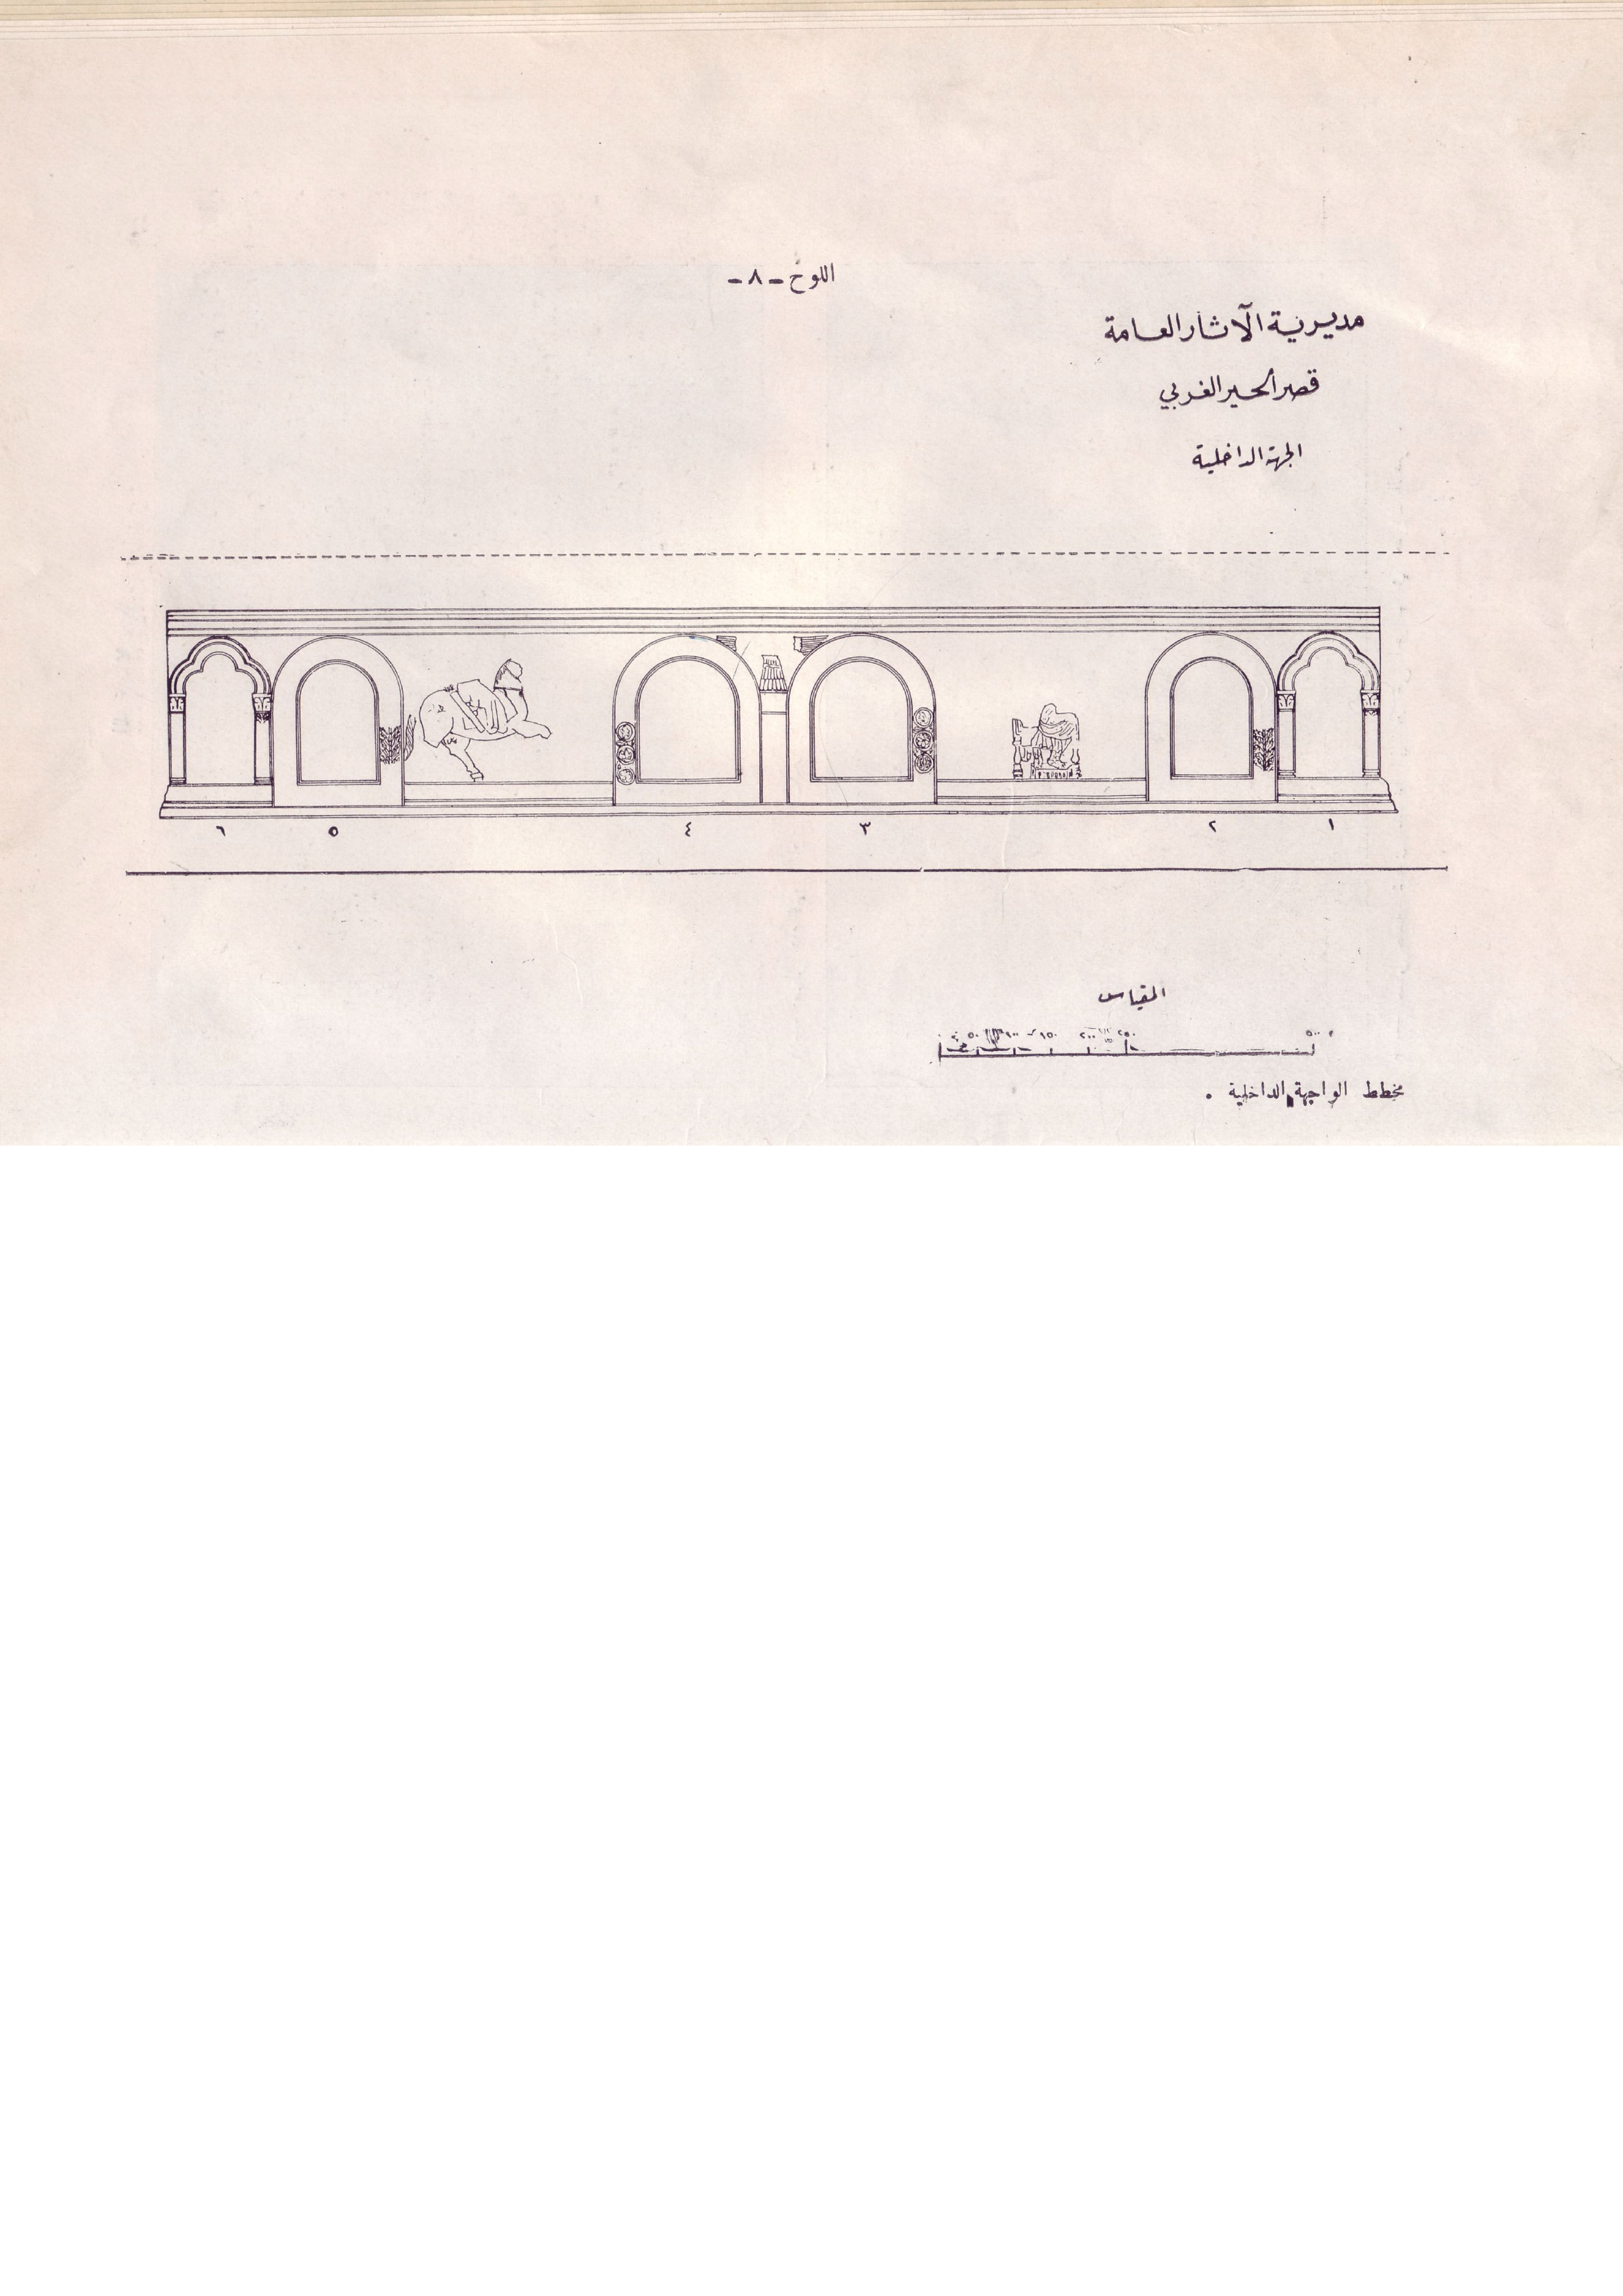 اللوح - ٨ -
مديرية الآثار العامة
قصر الحير الغربي
الجهة الداخلية
٦ ٥ ٤ ٣ ٢ ١
المقياس
٥٠ ١٠٠ ١٥٠ ٢٠٠ ٢٥٠ ٥٠٠
مخطط الواجهة الداخلية .